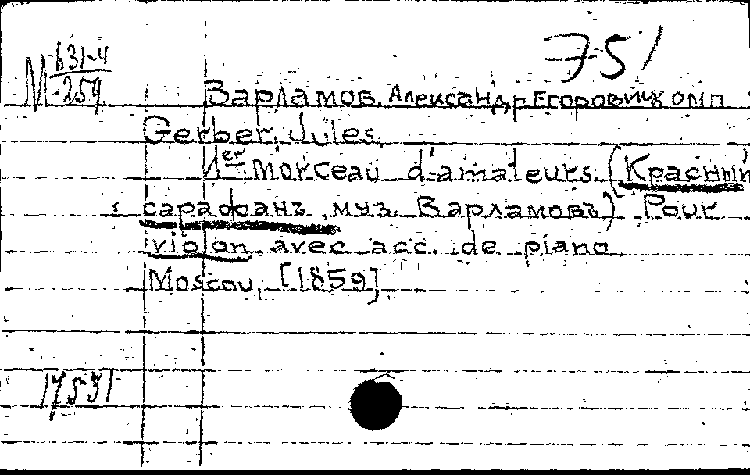 751
М 631-4
259
Варламов, Александр Егорович
Gerber, Jules.
1er morceau d'amateurs. (Красный
сарафанъ, муз. Варламовъ) Pour
violon avec acc. de piano.
Moscou, [1859].
17531